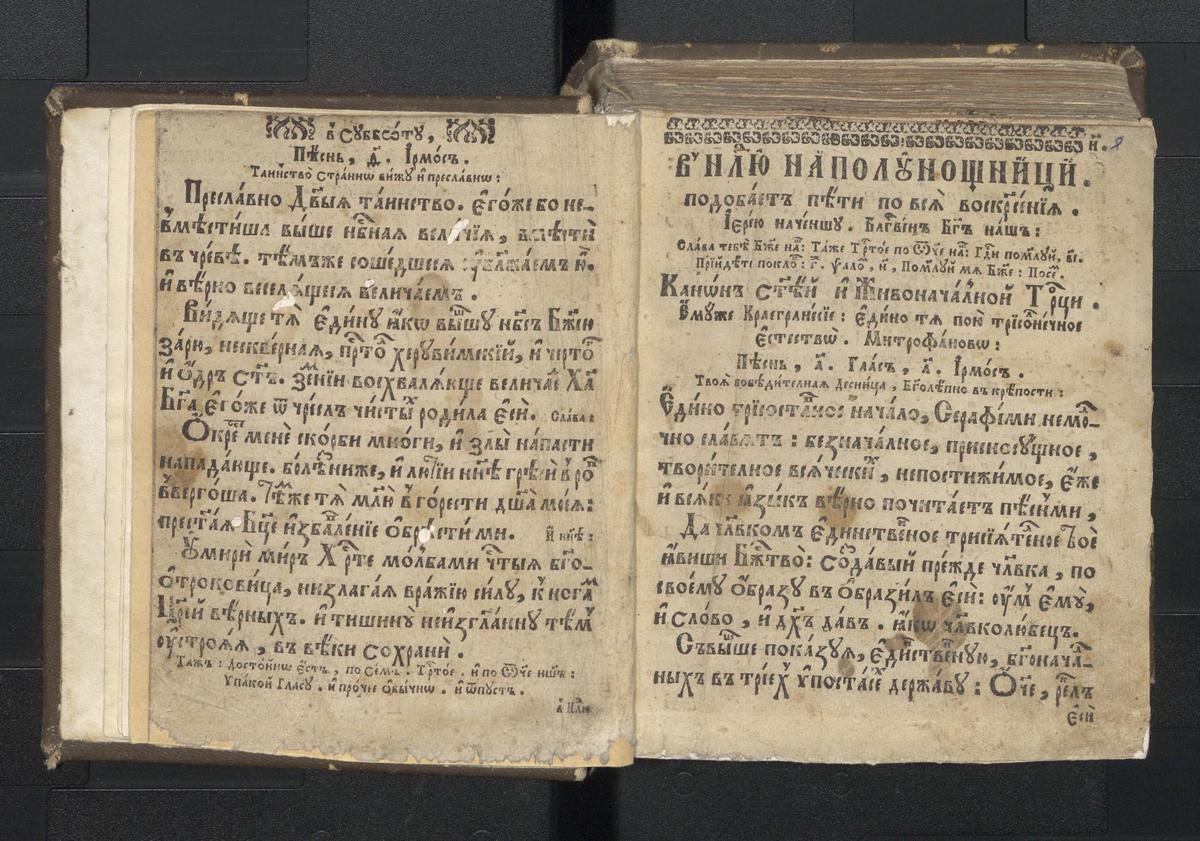 в̾ Сꙋббѡ́тꙋ,
Пѣ́снь, д҃. І҆рмо́съ.
Та́инство стра́нно ви́жꙋ и҆ пресла́вно:
Пресла́вно Дв҃ыѧ та́инство. Е҆го́же бо не-
вмѣсти́ша вы́шє нб҃наѧ вели́чїѧ, вмѣсти́
въ чре́вѣ. тѣ́мъже соше́дшесѧ ᲂу҆блажа́емъ ю҆.
и҆ вѣ́рно веселѧ́щесѧ велича́емъ.
Ви́дѧще тѧ̀ Е҆ди́нꙋ ꙗ҆́кѡ вы́шшꙋ нб҃съ Бж҃їю
за́рю, нескве́рнаѧ, прⷭ҇то́ херꙋви́мскїй, и҆ черто́
и҆ ѻ҆́дръ ст҃ъ. зе́мнїи восхвалѧ́юще велича́е Хаⷭ҇
Бг҃а Е҆го́же ѿ чре́слъ чи́стыⷯ роди́ла Е҆сѝ. Сла́ва:
Ѻ҆́крⷭ҇тъ менѐ ско́рби мно́ги, и҆ злы̀ на́пасти
напада́юще. болѣ́зниже, и҆ лю́тїи нн҃ѣ грѣсѝ в̾ ро́
вверго́ша. Тѣ́мже тѧ̀ млю̀ в̾ го́рести дш҃а моеѧ̀:
прест҃аѧ Бц҃е и҆збавле́нїе ѡ҆брѣ́сти ми. И҆ нн҃ѣ:
Оу҆мирѝ ми́ръ Хрⷭ҇те моли́тбами чⷭ҇тыѧ бг҃о-
ѻ҆трокови́ца, низлага́ѧ вра́жїю си́лꙋ, к̾ нога́ⷨ
Цр҃е́й вѣ́рныхъ. и҆ тишинꙋ̀ неизгл҃а́ннꙋ тѣ́ⷨ
ᲂу҆строѧ́ѧ, въ вѣ́ки сохранѝ.
Та́жъ: Досто́йнѡ є҆́сть, по се́мъ. Трⷭ҇то́е. и҆ по Ѿ́че нш҃ъ:
Ѵ҆пако́й Гла́сꙋ. и҆ про́чее ѡ҆бы́чнѡ. и҆ ѿпꙋ́стъ.
в̾ Нл҃ю
и҃. 8
В̾ НЛ҃Ю НАПОЛꙊНОЩНИЦИ.
подоба́етъ пѣ́ти по всѧ̀ воскрⷭ҇нїѧ.
І҆ере́ю наче́ншꙋ. Блгⷭ҇ве́нъ Бг҃ъ на́шъ:
Сла́ва тебѣ̀ Бж҃е на́ⷲ: Та́же Трⷭ҇то́е по Ѿ́че на́ⷲ: Гдⷭ҇и поми́лꙋй, в҃і.
Прїиди́те покло́: г҃. ѱало́, н҃, Поми́лꙋй мѧ Бж҃е: По се́.
Канѡ́нъ ст҃ѣ́й и҆ Живонача́лной Трⷪ҇ци.
Е҆мꙋ́же Краегране́сїе: Е҆ди́но тѧ пою̀ трїсо́лнечное
Е҆стество̀. Митрофа́новѡ:
Пѣ́снь, а҃. Гла́съ, а҃. І҆рмо́съ.
Твоѧ̀ побѣди́телнаѧ Десни́ца, Бг҃олѣ́пно въ крѣ́пости:
Е҆ди́но трїѵ҆поста́сное нача́ло, Серафі́ми немо́л-
чно сла́вѧтъ: безнача́лное, присносꙋ́щное,
твори́телное всѧ́ческиⷯ, непостижи́мое, Е҆́же
и҆ всѧ́къ ꙗ҆зы́къ вѣ́рно почита́етъ пѣ́сньми,
Да чл҃вкомъ Е҆ди́нственое трисїѧ́телное Твоѐ
ꙗ҆ви́ши Бжⷭ҇тво̀: созда́вый пре́жде чл҃вка, по
своемꙋ̀ ѡ҆́бразꙋ въѡбрази́лъ Е҆сѝ: ᲂу҆́мъ Е҆мꙋ̀,
и҆ сло́во, и҆ дх҃ъ да́въ. ꙗ҆́кѡ чл҃вколю́бецъ.
Съвы́ше показꙋ́ѧ, Е҆ди́нственꙋю, бг҃онача́л-
ныхъ въ трїе́х ѵ҆поста́сеⷯ держа́вꙋ: Ѻ҆́ч҃е, ре́клъ
Е҆сѝ